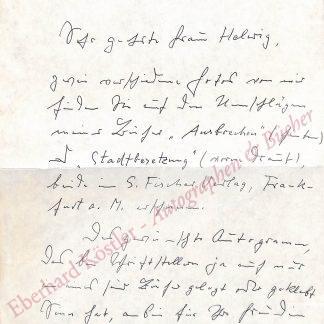 Sehr geehrte Frau Helwig,
zwei verschiedene Fotos von mir
finden Sie auf den Umschlägen
meiner Bücher „Ausbrechen" (hinten)
u. „Stadtbesetzung" (vorn drauf),
beide im S. Fischer Verlag, Frank-
furt a. M. erschienen.
Das gewünschte Autogramm,
das der Schriftsteller ja auf
in Bücher gelegt oder geklebt
hat,
Eberhard Köstler - Autographen & Bücher